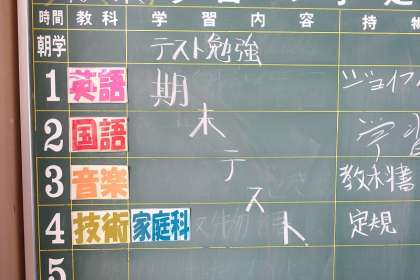 時間 教科 学習内容 持物
朝学 テスト勉強
1 英語 期 ジョイフ
2 国語 末 学習
3 音楽 テ 教本書
4 技術 家庭科 スト 定規
5